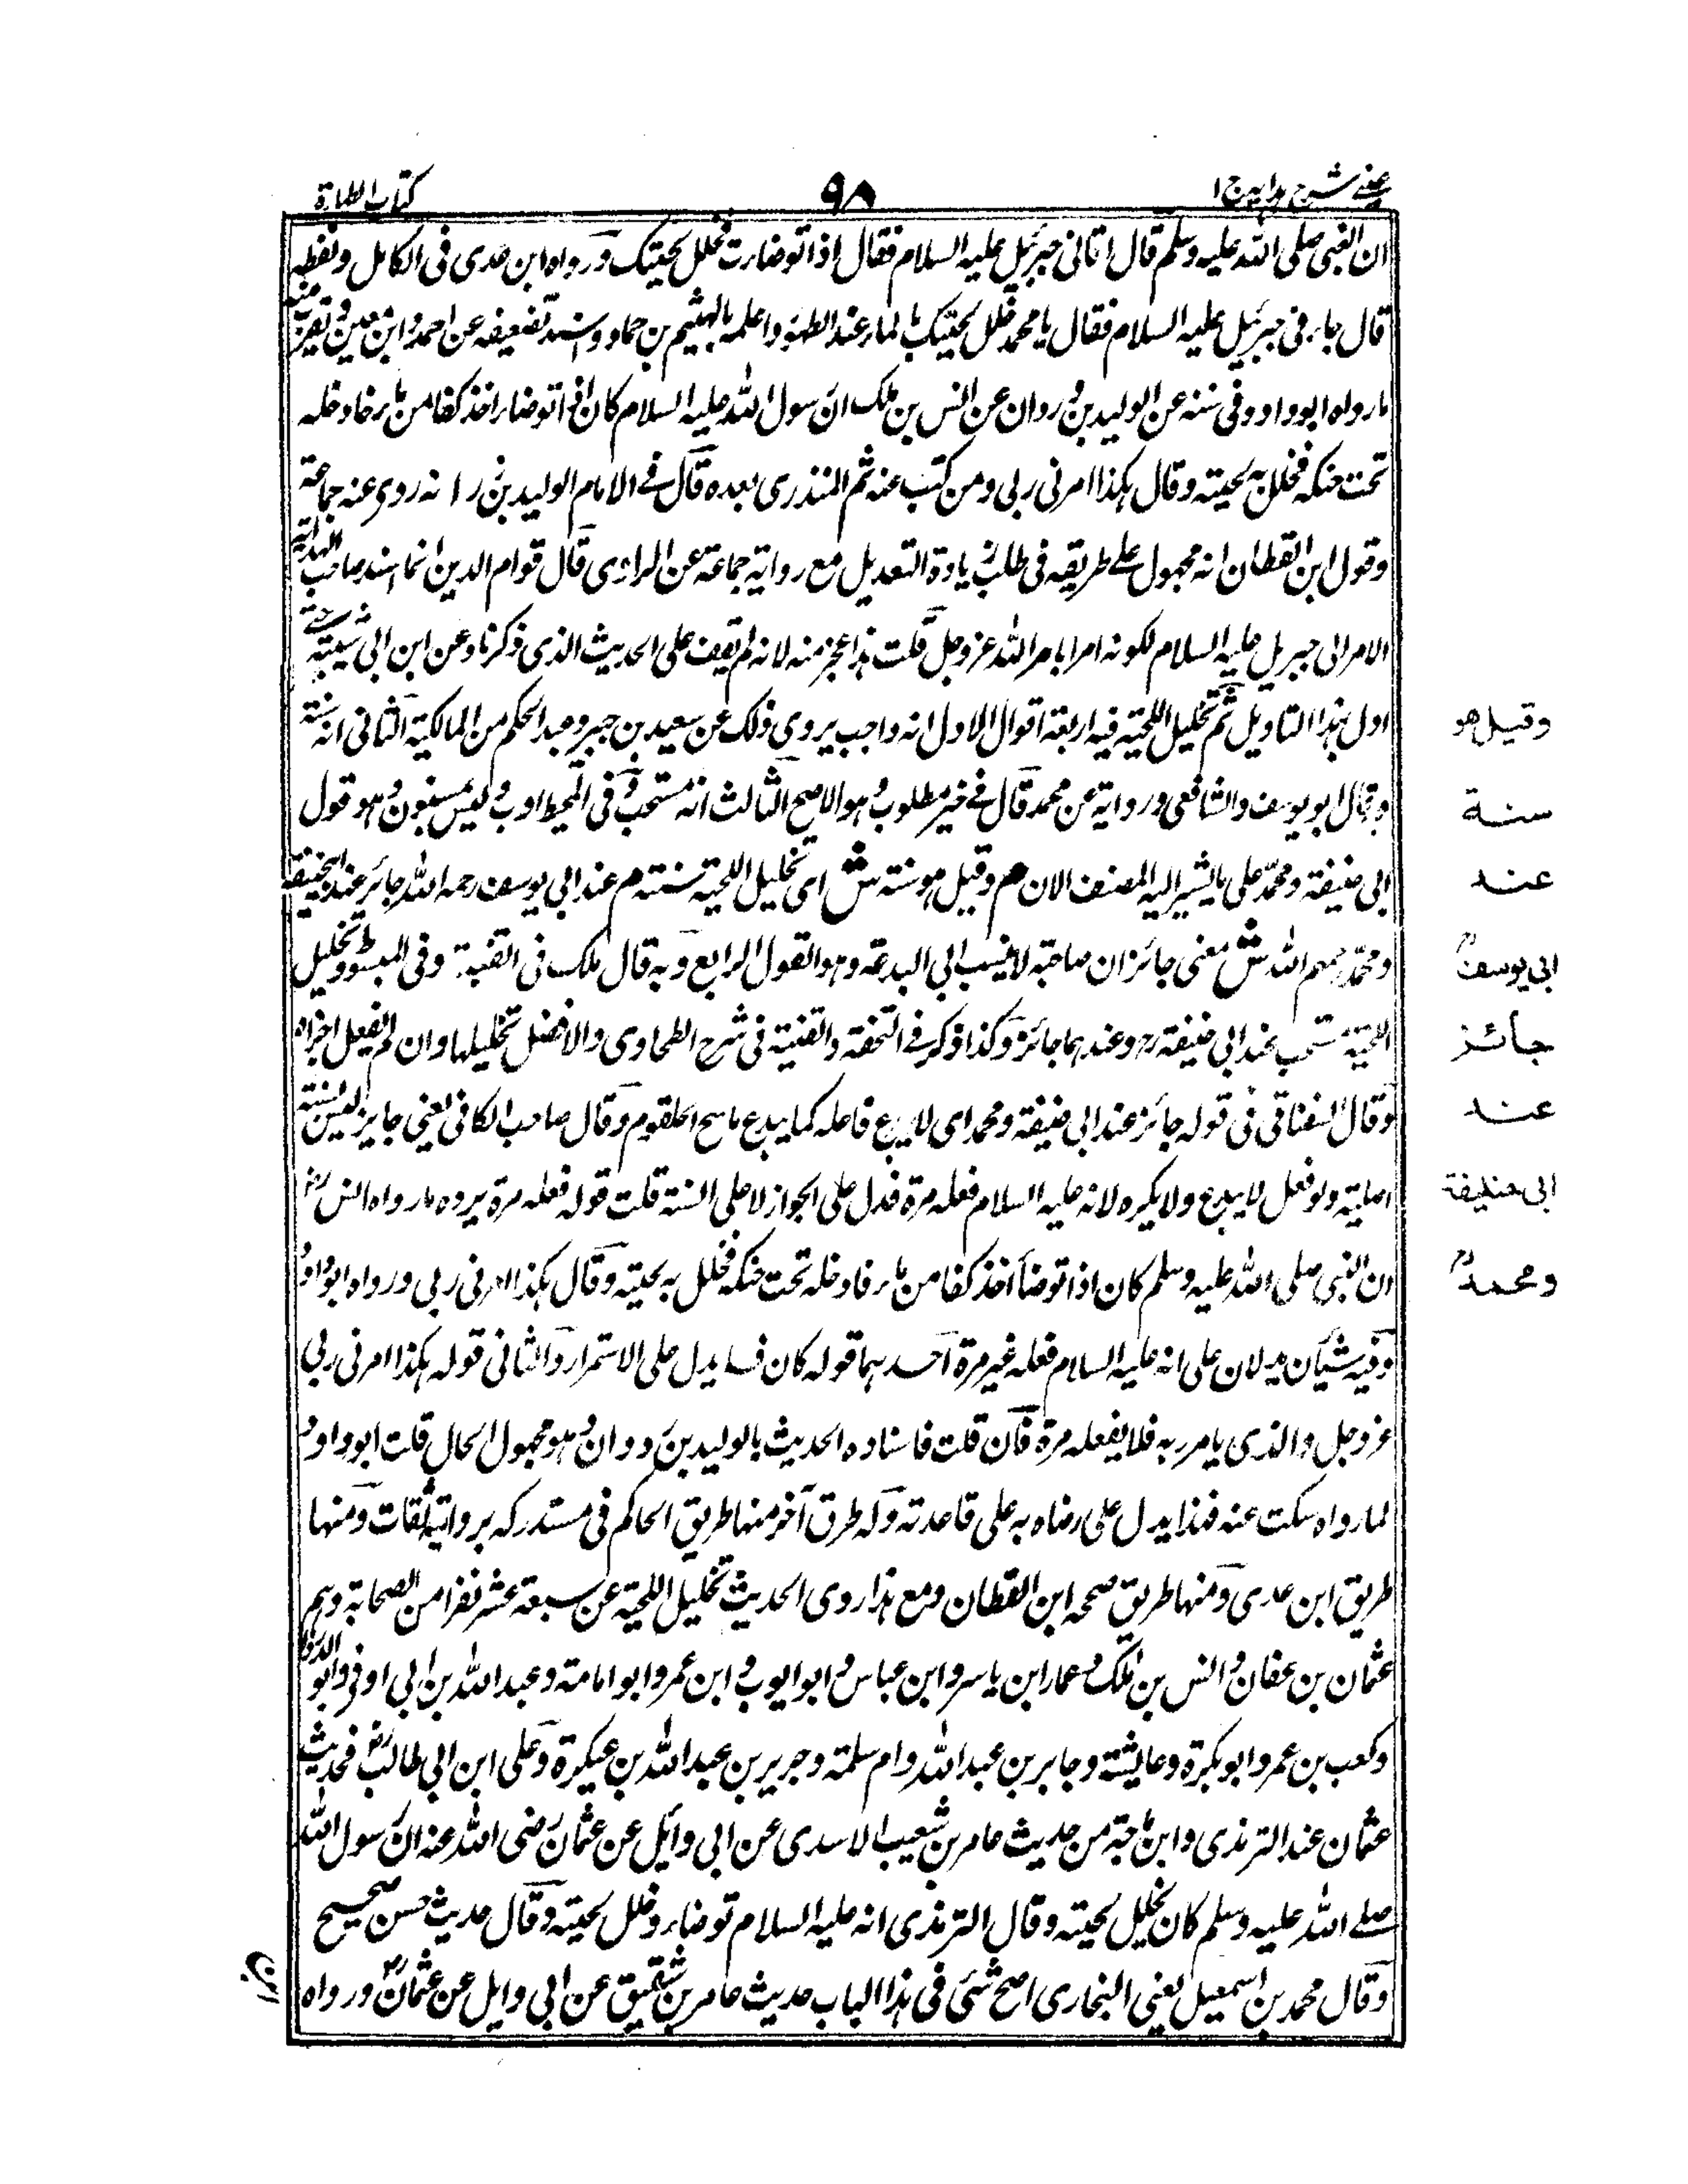 عینی شرح ہدایہ ج ۱
۹۸
کتاب الطہارة
ان النبی صلی اللہ علیہ وسلم قال اتانی جبرئیل علیہ السلام فقال اذا توضات فخلل لحیتک ورواہ ابن عدی فی الکامل ولفظہ
قال جاءنی جبرئیل علیہ السلام فقال یا محمد خلل لحیتک بالماء عند الطہور واعلہ بالہیثم بن حماد واسند تضعیفہ عن احمد وابن معین
ما رواہ ابو داود فی سننہ عن الولید بن زروان عن انس بن ملک ان رسول اللہ علیہ السلام کان اذا توضاء اخذ کفا من ماء فادخلہ
تحت حنکہ فخلل بہ لحیتہ وقال ہکذا امرنی ربی ومن کتب عنہ ثم المنذری بعدہ قال فے الامام الولید بن انہ روی عنہ جماعة
وقول ابن القطان انہ مجہول علے طریقہ فی طلب زیادة التعدیل مع روایة جماعة عن الراوی قال قوام الدین انما اسند صاحب الہدایة
الامر الی جبریل علیہ السلام لکونہ امرا بامر اللہ عز وجل قلت ہذا عجز منہ لانہ لم یقف علی الحدیث الذی ذکرناہ عن ابن ابی شیبة حتے
اول ہذا التاویل ثم تخلیل اللحیة فیہ اربعة اقوال الاول انہ واجب یروی ذلک عن سعید بن جبیر وعبد الحکم من المالکیة الثانی انہ سنة
وبہ قال ابو یوسف والشافعی وروایة عن محمد قال فے خیر مطلوب وہو الاصح الثالث انہ مستحب وفی المحیط ادب ولیس بمسنون وہو قول
ابی حنیفة ومحمد علی ما یشیر الیہ المصنف الان م وقیل ہو سنة ش ای تخلیل اللحیة سنة م عند ابی یوسف رحمہ اللہ جائز عند ابی حنیفة
ومحمد رحمہم اللہ ش معنی جائز ان صاحبہ لا ینسب الی البدعة وہو القول الرابع وبہ قال ملک فی القنیة وفی المبسوط وتخلیل
اللحیة مستحب عند ابی حنیفة رح وعندہما جائز وکذا ذکر فے التحفة والقنیة فی شرح الطحاوی والافضل تخلیلہا وان لم یفعل اجزاہ
وقال السغناقی فی قولہ جائز عند ابی حنیفة ومحمد ای لا یبدع فاعلہ کما یبدع ماسح الحلقوم وقال صاحب الکافی یعنی جایز لیس بسنة
اصلیة ولو فعل لا یبدع ولا یکرہ لانہ علیہ السلام فعلہ مرة فدل علی الجواز لا علی السنة قلت قولہ فعلہ مرة یردہ ما رواہ انس رض
ان النبی صلی اللہ علیہ وسلم کان اذا توضأ اخذ کفا من ماء فادخلہ تحت حنکہ فخلل بہ لحیتہ وقال ہکذا امرنی ربی ورواہ ابو داود
وفیہ شیآن یدلان علی انہ علیہ السلام فعلہ غیر مرة احدہما قولہ کان فانہ یدل علی الاستمرار والثانی قولہ ہکذا امرنی ربی
عز وجل والذی یامر ربہ فلا یفعلہ مرة فان قلت فاسنادہ الحدیث بالولید بن زروان وہو مجہول الحال قلت ابو داود
لما رواہ سکت عنہ فہذا یدل علی رضاہ بہ علی قاعدتہ ولہ طرق آخر منہا طریق الحاکم فی مستدرکہ بروایة ثقات ومنہا
طریق ابن عدی ومنہا طریق صححہ ابن القطان ومع ہذا روی الحدیث تخلیل اللحیة عن سبعة عشر نفرا من الصحابة وہم
عثمان بن عفان وانس بن ملک وعمار ابن یاسر وابن عباس وابو ایوب وابن عمر وابو امامة وعبد اللہ بن ابی اوفی وابو الدرداء
وکعب بن عمر وابو بکرة وعایشة وجابر بن عبد اللہ وام سلمة وجریر بن عبد اللہ بن عیکرة وعلی ابن ابی طالب رض فحدیث
عثمان عند الترمذی وابن ماجة من حدیث عامر بن شعیب الاسدی عن ابی وائل عن عثمان رضی اللہ عنہ ان رسول اللہ
صلے اللہ علیہ وسلم کان یخلل لحیتہ وقال الترمذی انہ علیہ السلام توضاء وخلل لحیتہ وقال حدیث حسن صحیح
وقال محمد بن اسمعیل یعنی البخاری اصح شئی فی ہذا الباب حدیث عامر بن شقیق عن ابی وایل عن عثمان رض ورواہ
وقیل هو
سنة
عند
ابی یوسف
جائز
عند
ابی حنیفة
ومحمد
ابن